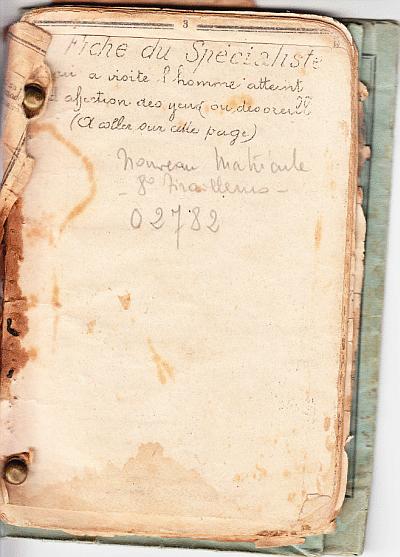 3
Fiche du Spécialiste
qui a visité l'homme atteint
affection des yeux ou des oreilles
(A coller sur cette page)
Nouveau Matricule
- 8e Tirailleurs -
02782